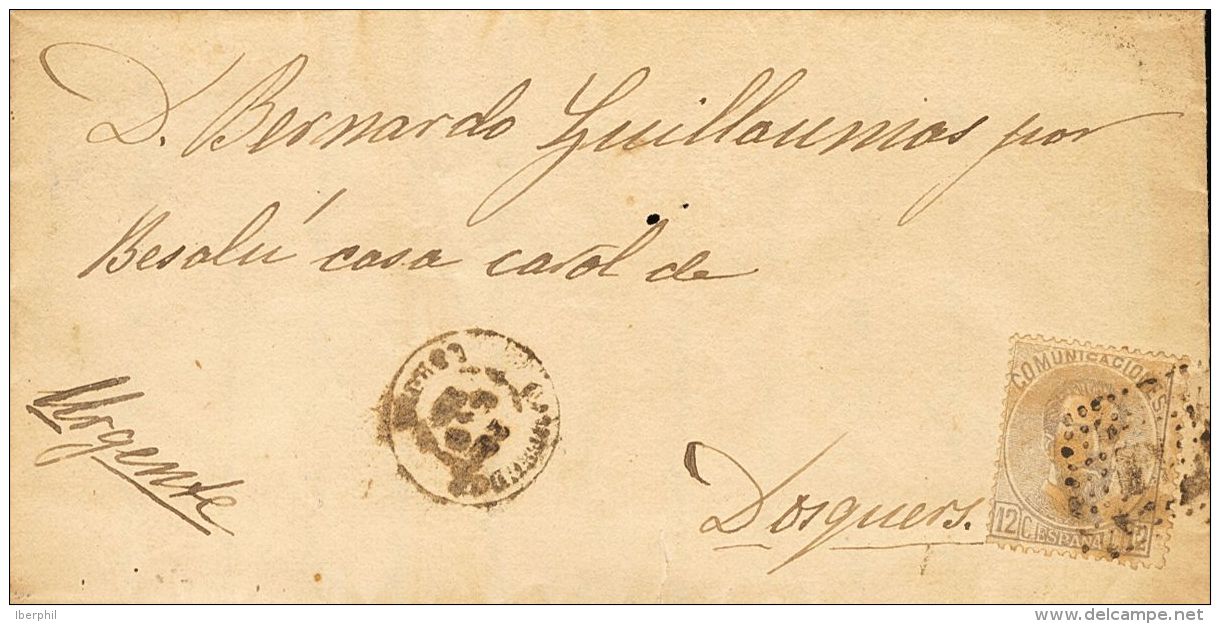 D. Bernardo Guillaumas por
Besalú casa carol de
Urgente
Dosquers.
COMUNICACIONES
12 C. ESPAÑA 12
Iberphil
www.delcampe.net